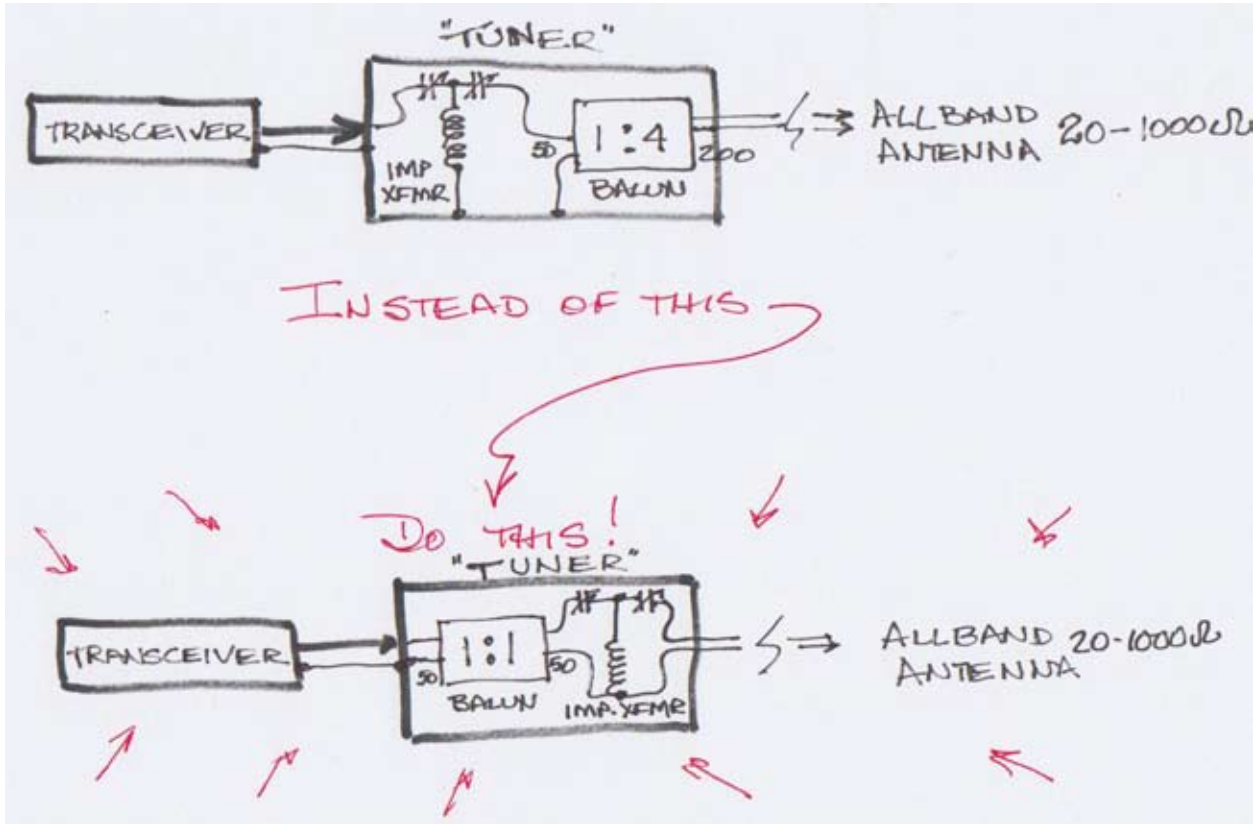 "TUNER"
TRANSCEIVER
IMP
XFMR
50
1:4
200
BALUN
ALLBAND
ANTENNA
20-1000Ω
INSTEAD OF THIS
DO THIS!
"TUNER"
TRANSCEIVER
50
1:1
50
BALUN
IMP. XFMR
ALLBAND
ANTENNA
20-1000Ω